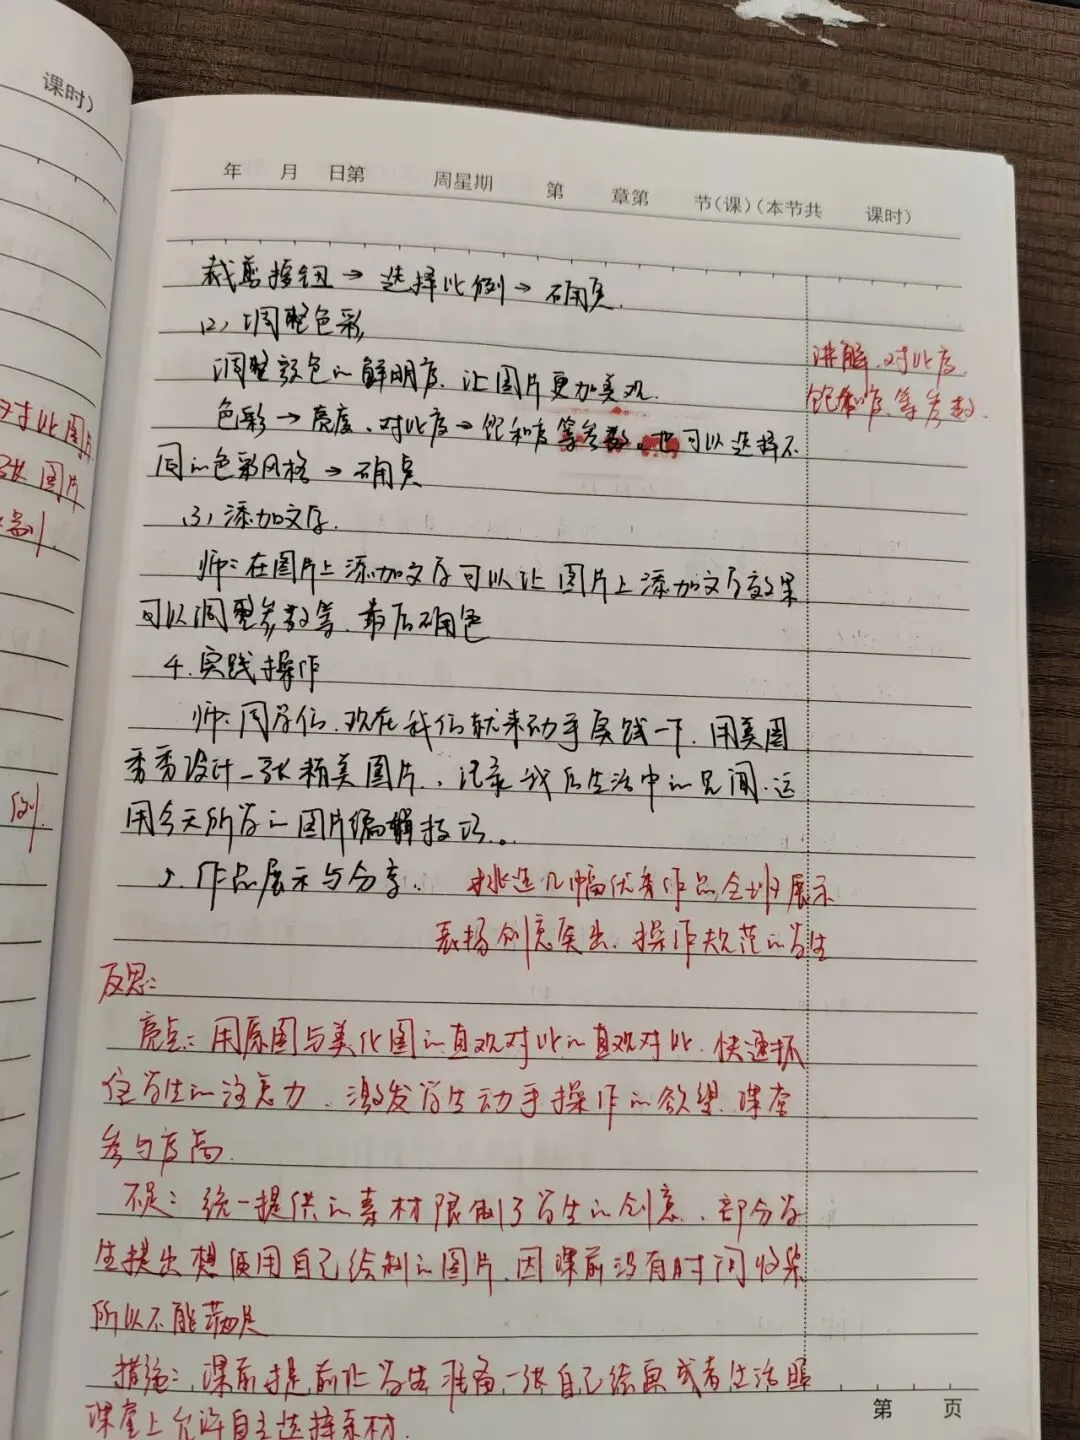 课时)
年 月 日第 周星期 第 章第 节(课)(本节共 课时)
裁剪按钮→选择比例→确定.
(2)调整色彩
调整颜色的鲜明度.让图片更加美观.
色彩→亮度、对比度→饱和度等参数。也可以选择不
同的色彩风格→确定
讲解.对比度
饱和度.等参数.
(3)添加文字.
师:在图片上添加文字可以让图片上添加文字效果
可以调整参数等.最后确定
4.实践操作
师:同学们.现在我们就来动手实践一下.用美图
秀秀设计一张精美图片.记录我们生活中的见闻.运
用今天所学的图片编辑技巧。
5.作品展示与分享. 挑选几幅优秀作品全班展示
表扬创意突出.操作规范的学生
反思:
亮点:用原图与美化图的直观对比的直观对比.快速抓
住学生的注意力.激发学生动手操作的欲望.课堂
参与度高.
不足:统一提供的素材限制了学生的创意.部分学
生提出想使用自己绘制的图片.因课前没有时间收集
所以不能满足
措施:课前提前让学生准备一张自己绘画或者生活照
课堂上允许自主选择素材.
对比图片
张图片
例.
第 页